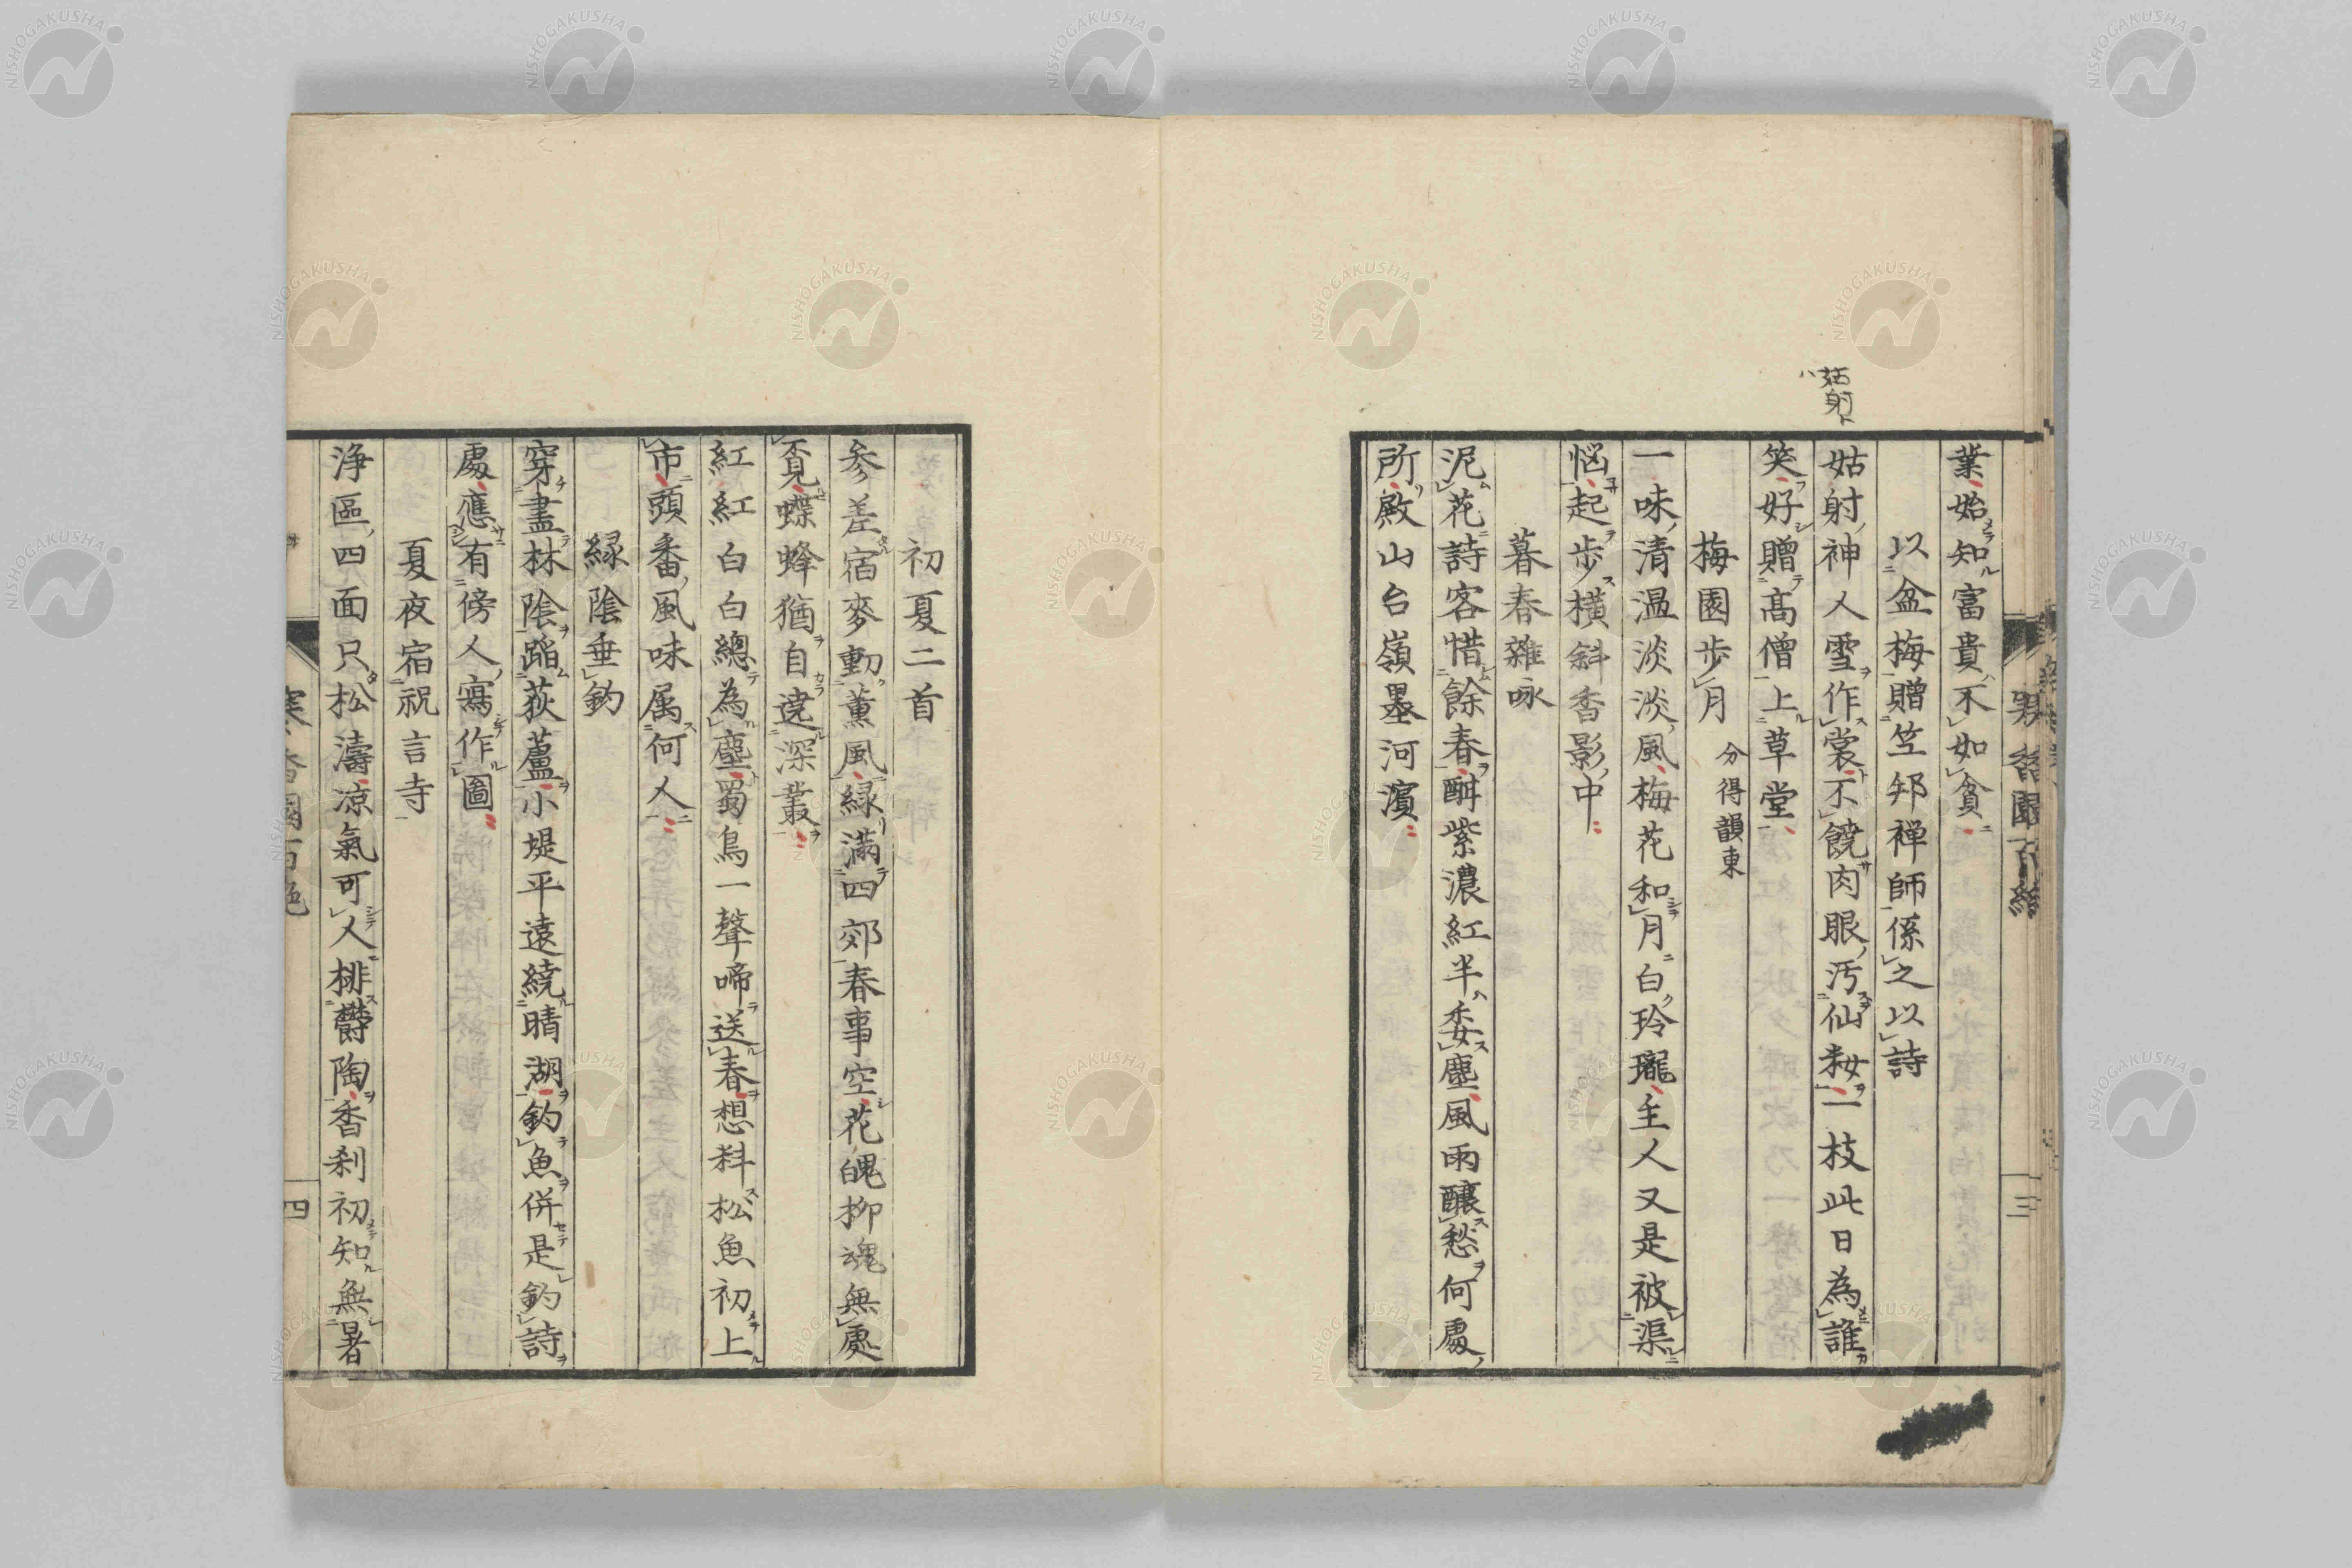 業始知富貴不如貧
以盆梅贈竺邨禅師係之以詩
姑射神人雪作裳不饒肉眼汚仙粧一枝此日為誰
笑好贈高僧上草堂
梅園歩月 分得韻東
一味清温淡淡風梅花和月白玲瓏主人又是被渠
悩起歩横斜香影中
暮春雑咏
泥花詩客惜餘春酣紫濃紅半委塵風雨釀愁何處
所殿山台嶺墨河濱
姑射ト
初夏二首
参差宿麥動薫風緑満四郊春事空花魄柳魂無處
覓蝶蜂猶自遶深叢
紅紅白白總為塵蜀鳥一聲啼送春想料松魚初上
市頭番風味属何人
緑陰垂釣
穿盡林陰蹈荻蘆小堤平遠繞晴湖釣魚併是釣詩
處應有傍人寫作圖
夏夜宿祝言寺
浄區四面只松濤凉氣可人排欝陶香刹初知無暑
三
四
NISHOGAKUSHA